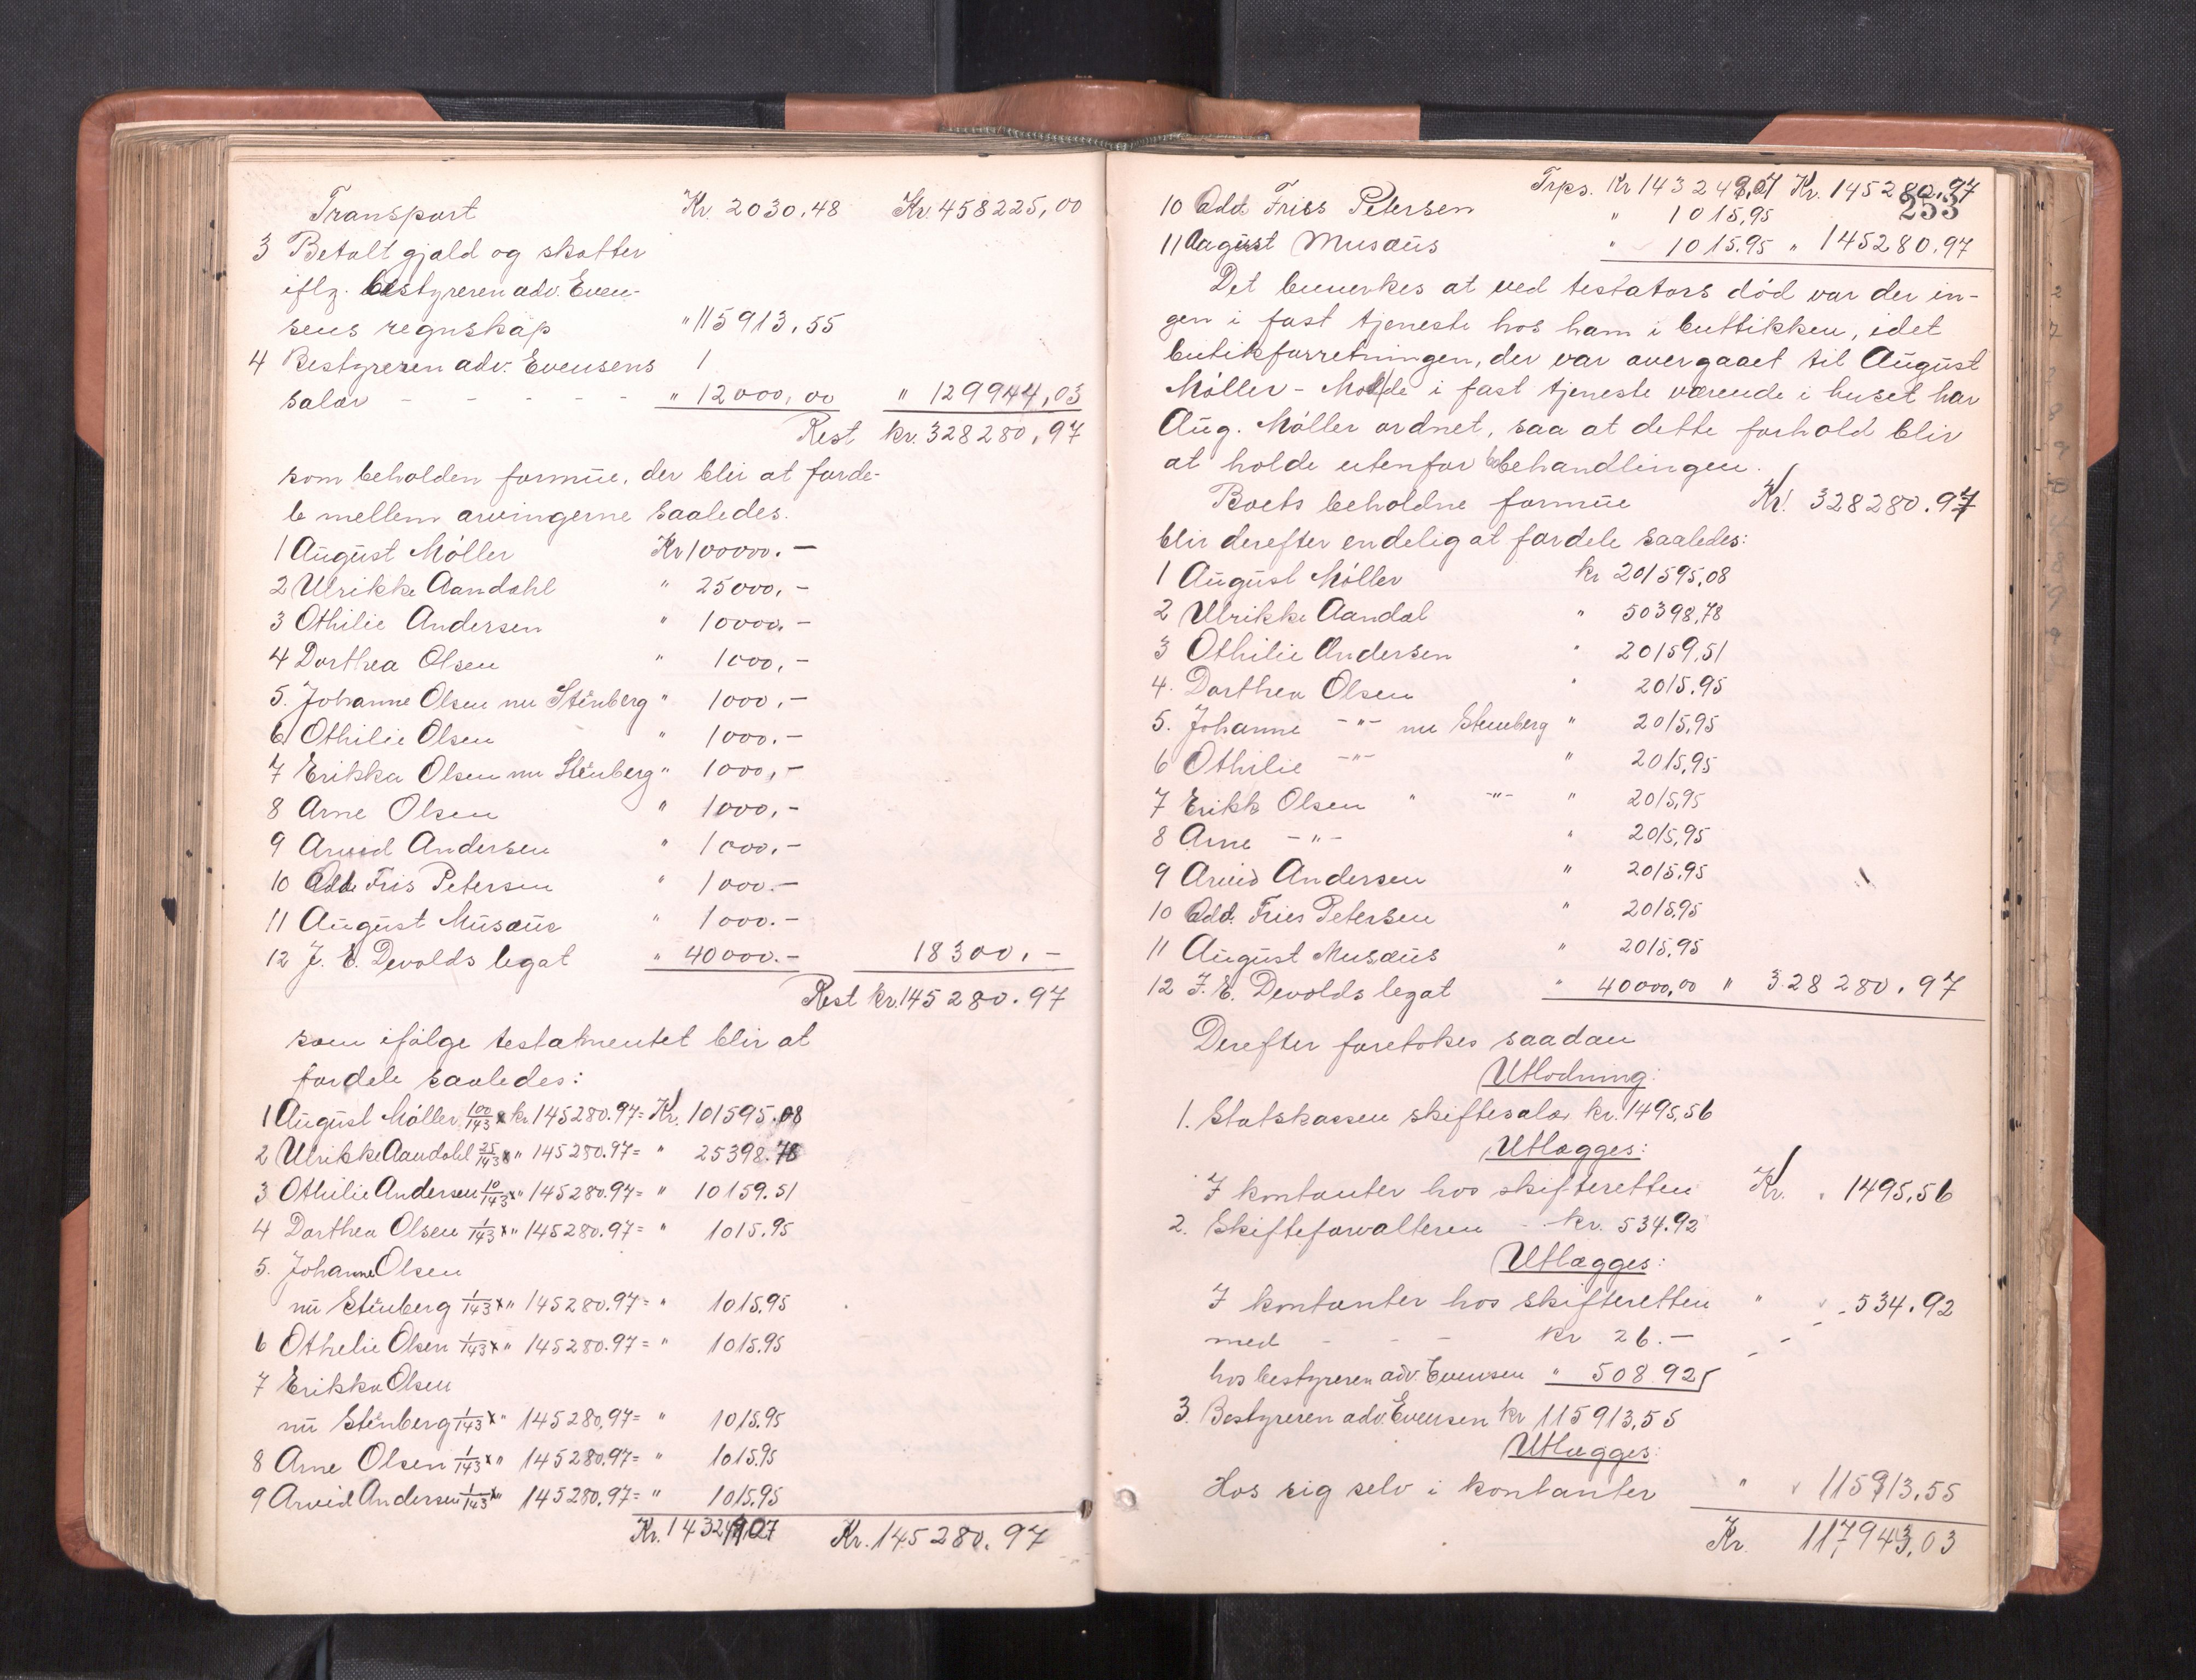 Transport Kr. 2030,48 Kr. 458225,00
3 Betalt gjæld og skatter
iflg. bestyreren adv. Even-
sens regnskap " 115913,55
4 Bestyreren adv. Evensens
salær - - - - - " 12000,00 " 129944,03
Rest kr. 328280,97
som beholden formue, der blir at forde-
le mellem arvingerne saaledes.
1 August Møller Kr 100000.-
2 Ulrikke Aandahl " 25000,-
3 Othilie Andersen " 10000,-
4 Dorthea Olsen " 1000,-
5. Johanne Olsen nu Stenberg " 1000,-
6 Othilie Olsen " 1000.-
7 Erikka Olsen nu Stenberg " 1000,-
8 Arne Olsen " 1000,-
9 Arvid Andersen " 1000,-
10 Odd Fris Petersen " 1000.-
11 August Musæus " 1000.-
12 J. E. Devolds legat " 40000.- 18300,-
Rest kr. 145280.97
som ifølge testamentet blir at
fordele saaledes:
1 August Møller 100/143 x kr 145280.97 = Kr. 101595.08
2 Ulrikke Aandahl 25/143 x " 145280.97 = " 25398.78
3 Othilie Andersen 10/143 x " 145280.97 = " 10159.51
4 Dorthea Olsen 1/143 x " 145280.97 = " 1015.95
5. Johanne Olsen
nu Stenberg 1/143 x " 145280.97 = " 1015.95
6 Othelie Olsen 1/143 x " 145280.97 = " 1015.95
7 Erikka Olsen
nu Stenberg 1/143 x " 145280,97 = " 1015.95
8 Arne Olsen 1/143 x " 145280.97 = " 1015.95
9 Arvid Andersen 1/143 x " 145280.97 = " 1015.95
Kr. 143249,07 Kr. 145280.97
Trps. Kr 143249,07 Kr. 145280,97
253
10 Odd Friis Petersen " 1015,95
11 August Musæus " 1015.95 " 145280.97
Det bemerkes at ved testators død var der in-
gen i fast tjeneste hos ham i buttikken, idet
butikforretningen, der var overgaaet til August
Møller - Molde i fast tjeneste værende i huset har
Aug. Møller ordnet, saa at dette forhold blir
at holde utenfor bobehandlingen.
Boets beholdne formue Kr. 328280.97
blir derefter endelig at fordele saaledes:
1 August Møller kr 201595,08
2 Ulrikke Aandal " 50398,78
3 Othilie Andersen " 20159,51
4. Dorthea Olsen " 2015.95
5. Johanne -"- nu Stenberg " 2015,95
6 Othilie -"- " 2015,95
7 Erikk Olsen " -"- " 2015,95
8 Arne -"- " 2015,95
9 Arvid Andersen " 2015.95
10 Odd. Fries Petersen " 2015,95
11 August Musæus " 2015,95
12 J. E. Devolds legat " 40000,00 " 328280.97
Derefter foretokes saadan
Utlodning:
1. Statskassen skiftesalær kr. 1495,56
Utlægges:
I kontanter hos skifteretten Kr. " 1495,56
2. Skifteforvalteren - kr. 534.92
Utlægges:
I kontanter hos skifteretten " 534.92
med - - - kr 26.-
hos bestyreren adv. Evensen " 508.92
3. Bestyreren adv. Evensen kr 115913,55
Utlægges:
Hos sig selv i kontanter " 115913,55
Kr. 117943,03